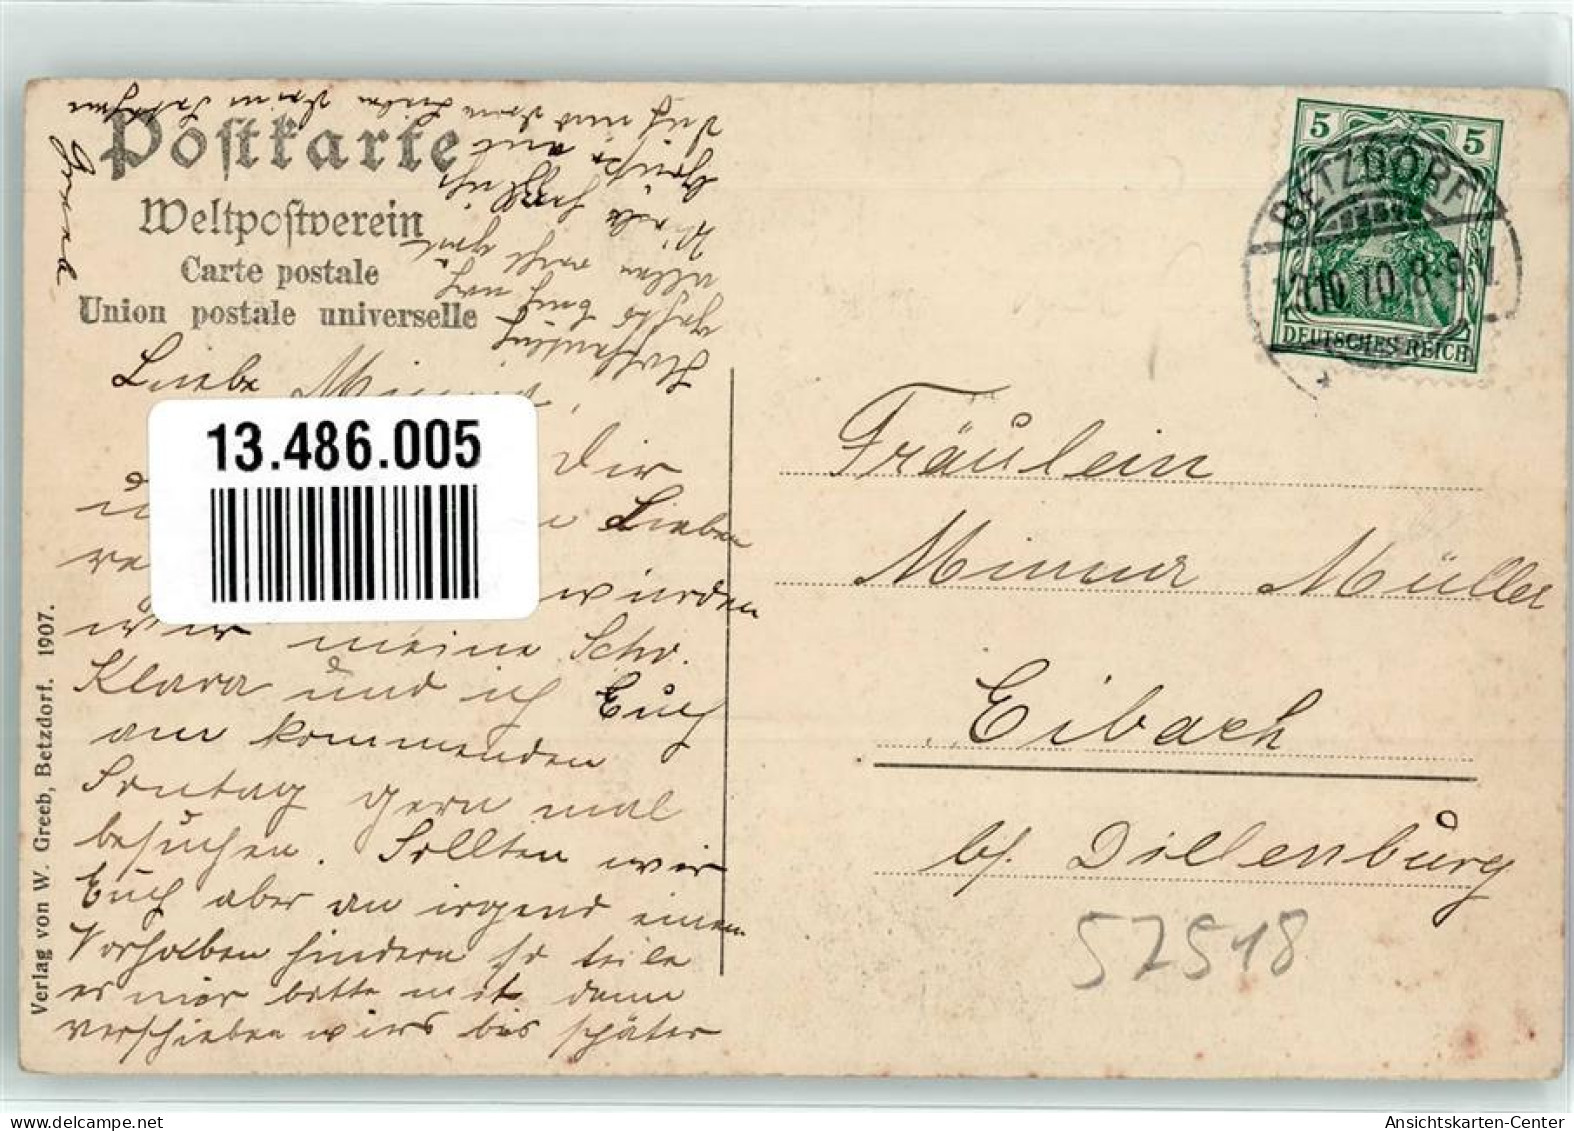 Postkarte
Weltpostverein
Carte postale
Union postale universelle
Liebe
13.486.005
Dir
Lieben
würden
wir meine Schw.
Klara und ich Euch
am kommenden
Sontag gern mal
besuchen. Sollten wir
Euch aber an irgend einem
Vorhaben hindern so teile
es mir bitte mit dann
verschieben wirs bis später
viele herzliche
Grüße an
Dich und Deine Lieben
Deine
Freund
Verlag von W. Greeb, Betzdorf. 1907.
5 5
BETZDORF
10.10. 8-9 V.
DEUTSCHES REICH
Fräulein
Minna Müller
Eibach
b/. Dillenburg
57518
ansichtskarten-center.de
Ansichtskarten-Center